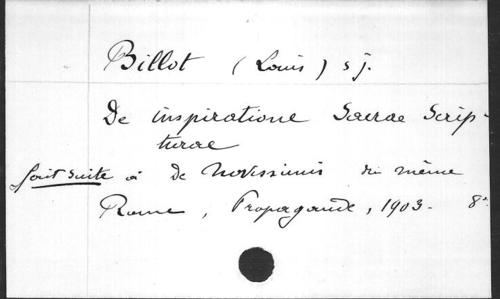 Billot (Louis) s j.
De inspiratione Sacrae Scrip-
turae
fait suite à de Novissimis du même
Rome, Propagande, 1903. 8°